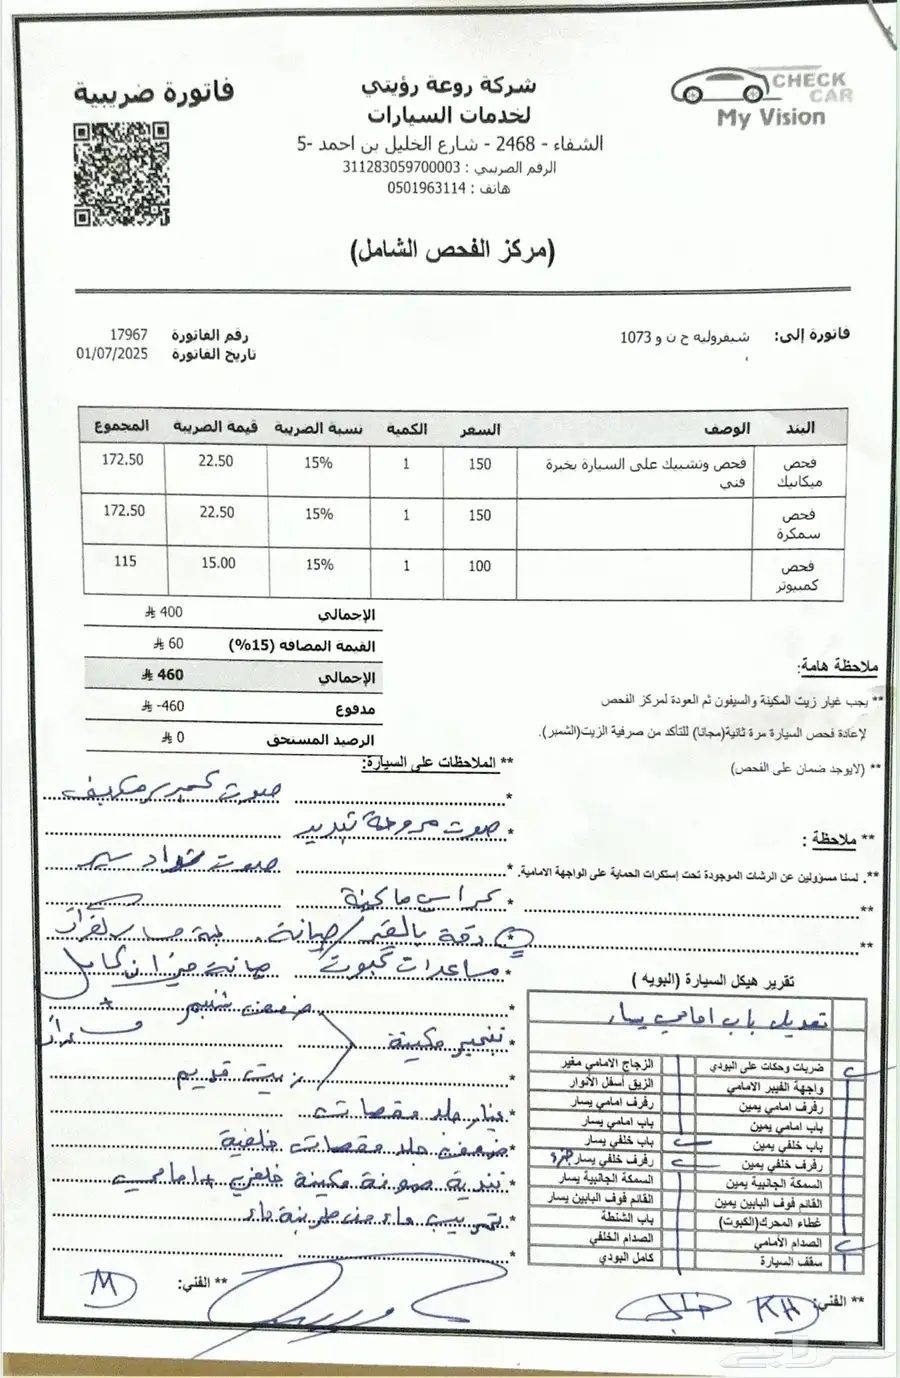 فاتورة ضريبية
شركة روعة رؤيتي
لخدمات السيارات
CHECK CAR
My Vision
الشفاء - 2468 - شارع الخليل بن احمد -5
الرقم الضريبي : 311283059700003
هاتف : 0501963114
(مركز الفحص الشامل)
فاتورة إلى: شيفروليه ح ن و 1073
رقم الفاتورة 17967
تاريخ الفاتورة 01/07/2025
البند الوصف السعر الكمية نسبة الضريبة قيمة الضريبة المجموع
فحص ميكانيك فحص وتشييك على السيارة بخبرة فني 150 1 15% 22.50 172.50
فحص سمكرة 150 1 15% 22.50 172.50
فحص كمبيوتر 100 1 15% 15.00 115
الإجمالي 400
القيمة المضافة (15%) 60
الإجمالي 460
مدفوع 460-
الرصيد المستحق 0
ملاحظة هامة:
** يجب غيار زيت المكينة والسيفون ثم العودة لمركز الفحص
لإعادة فحص السيارة مرة ثانية(مجانا) للتأكد من صرفية الزيت(الشمبر).
** (لايوجد ضمان على الفحص)
** ملاحظة :
**. لسنا مسؤولين عن الرشات الموجودة تحت إستكرات الحماية على الواجهة الامامية.
** الملاحظات على السيارة:
صوت كمبرسر مكيف
صوت مروحة تبريد
صوت شداد سير
كراسي ماكينة
دقة بالقير / صيانة
مساعدات كبوت
صيانة ميزان كامل
ضعف تنسيم
تبخير مكينة
زيت قديم
عفشة جلد مقصات
ضعف جلد مقصات خلفية
تندية صوفة مكينة خلفي + امامي
تهريب ماء من طرمبة ماء
تقرير هيكل السيارة (البويه )
تعديل باب امامي يسار
ضربات وحكات على البودي
الزجاج الامامي مغير
واجهة الفيبر الامامي
الزيق أسفل الأنوار
رفرف امامي يمين
رفرف امامي يسار
باب امامي يمين
باب امامي يسار
باب خلفي يمين
باب خلفي يسار
رفرف خلفي يمين
رفرف خلفي يسار جزء
السمكة الجانبية يمين
السمكة الجانبية يسار
القائم فوف البابين يمين
القائم فوف البابين يسار
غطاء المحرك(الكبوت)
باب الشنطة
الصدام الأمامي
الصدام الخلفي
سقف السيارة
كامل البودي
** الفني: KH
** الفني: M
حراج